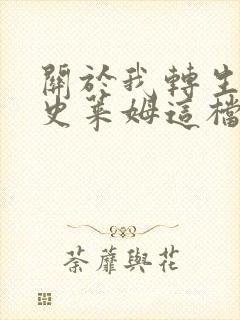 關於我轉生
史萊姆這檔
荼蘼與花